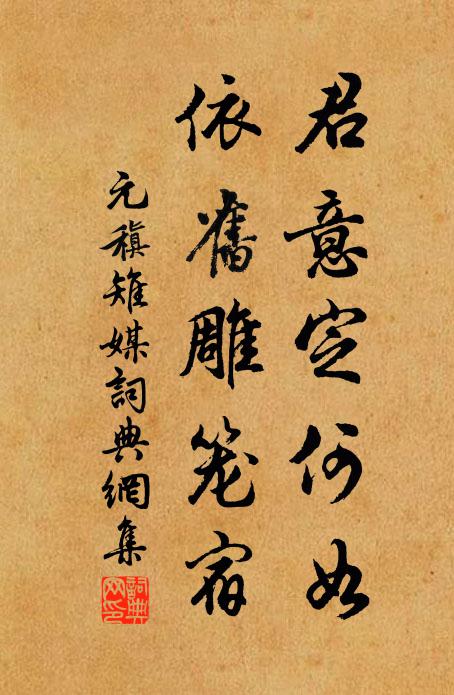 君意定何如
依舊雕笼宿
元稹雉媒詞典網集
詞典网印